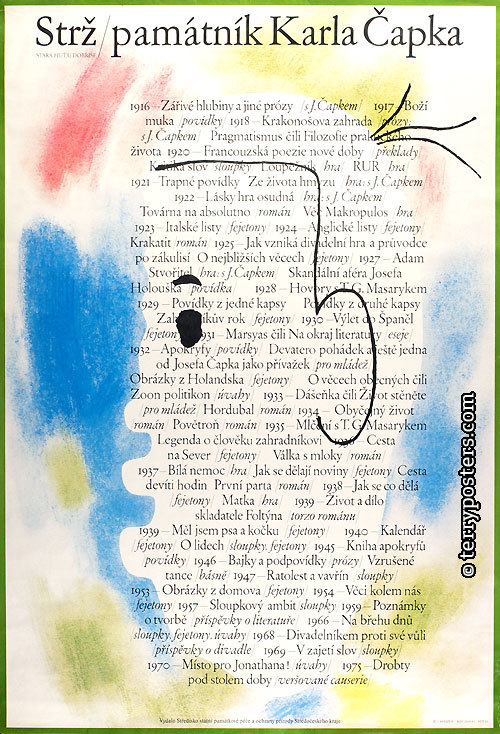 Strž/památník Karla Čapka
STARÁ HUŤ U DOBŘÍŠE
1916 – Zářivé hlubiny a jiné prózy /s J. Čapkem/ 1917 – Boží
muka povídky/ 1918 – Krakonošova zahrada /prózy;
s J. Čapkem/ Pragmatismus čili Filozofie praktického
života 1920 – Francouzská poezie nové doby /překlady/
Kritika slov sloupky/ Loupežník hra/ RUR hra/
1921 – Trapné povídky Ze života hmyzu /hra: s J. Čapkem
1922 – Lásky hra osudná /hra: s J. Čapkem
Továrna na absolutno román/ Věc Makropulos hra
1923 – Italské listy /fejetony/ 1924 – Anglické listy /fejetony/
Krakatit román 1925 – Jak vzniká divadelní hra a průvodce
po zákulisí O nejbližších věcech /fejetony/ 1927 – Adam
Stvořitel hra: s J. Čapkem Skandální aféra Josefa
Holouška povídka 1928 – Hovory s T. G. Masarykem
1929 – Povídky z jedné kapsy Povídky z druhé kapsy
Zahradníkův rok /fejetony/ 1930 – Výlet do Španěl
/fejetony/ 1931 – Marsyas čili Na okraj literatury eseje
1932 – Apokryfy povídky/ Devatero pohádek a ještě jedna
od Josefa Čapka jako přívažek /pro mládež
Obrázky z Holandska /fejetony/ O věcech obecných čili
Zoon politikon /úvahy/ 1933 – Dášeňka čili Život štěněte
/pro mládež Hordubal román 1934 – Obyčejný život
román Povětroň román 1935 – Mlčení s T. G. Masarykem
Legenda o člověku zahradníkovi 1936 – Cesta
na Sever /fejetony/ Válka s mloky román/
1937 – Bílá nemoc hra Jak se dělají noviny /fejetony Cesta
devíti hodin První parta román/ 1938 – Jak se co dělá
/fejetony/ Matka hra/ 1939 – Život a dílo
skladatele Foltýna /torzo románu
1939 – Měl jsem psa a kočku /fejetony/ 1940 – Kalendář
/fejetony O lidech /sloupky, fejetony 1945 – Kniha apokryfů
povídky/ 1946 – Bajky a podpovídky /prózy/ Vzrušené
tance /básně 1947 – Ratolest a vavřín /sloupky/
1953 – Obrázky z domova /fejetony 1954 – Věci kolem nás
/fejetony 1957 – Sloupkový ambit sloupky 1959 – Poznámky
o tvorbě /příspěvky o literatuře/ 1966 – Na břehu dnů
sloupky, fejetony, úvahy/ 1968 – Divadelníkem proti své vůli
/příspěvky o divadle/ 1969 – V zajetí slov /sloupky/
1970 – Místo pro Jonathana! /úvahy/ 1975 – Drobty
pod stolem doby /veršované causerie
Vydalo Středisko státní památkové péče a ochrany přírody Středočeského kraje
© terryposters.com